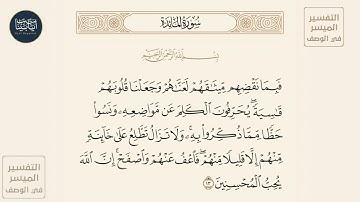 سُورَةُ المَائِدَةِ
بِسْمِ اللَّهِ الرَّحْمَٰنِ الرَّحِيمِ
فَبِمَا نَقْضِهِم مِّيثَٰقَهُمْ لَعَنَّٰهُمْ وَجَعَلْنَا قُلُوبَهُمْ
قَٰسِيَةً ۖ يُحَرِّفُونَ ٱلْكَلِمَ عَن مَّوَاضِعِهِۦ ۙ وَنَسُوا۟
حَظًّا مِّمَّا ذُكِّرُوا۟ بِهِۦ ۚ وَلَا تَزَالُ تَطَّلِعُ عَلَىٰ خَآئِنَةٍ
مِّنْهُمْ إِلَّا قَلِيلًا مِّنْهُمْ ۖ فَٱعْفُ عَنْهُمْ وَٱصْفَحْ ۚ إِنَّ ٱللَّهَ
يُحِبُّ ٱلْمُحْسِنِينَ ١٣
التفسير
الميسر
في الوصف
التفسير
الميسر
في الوصف